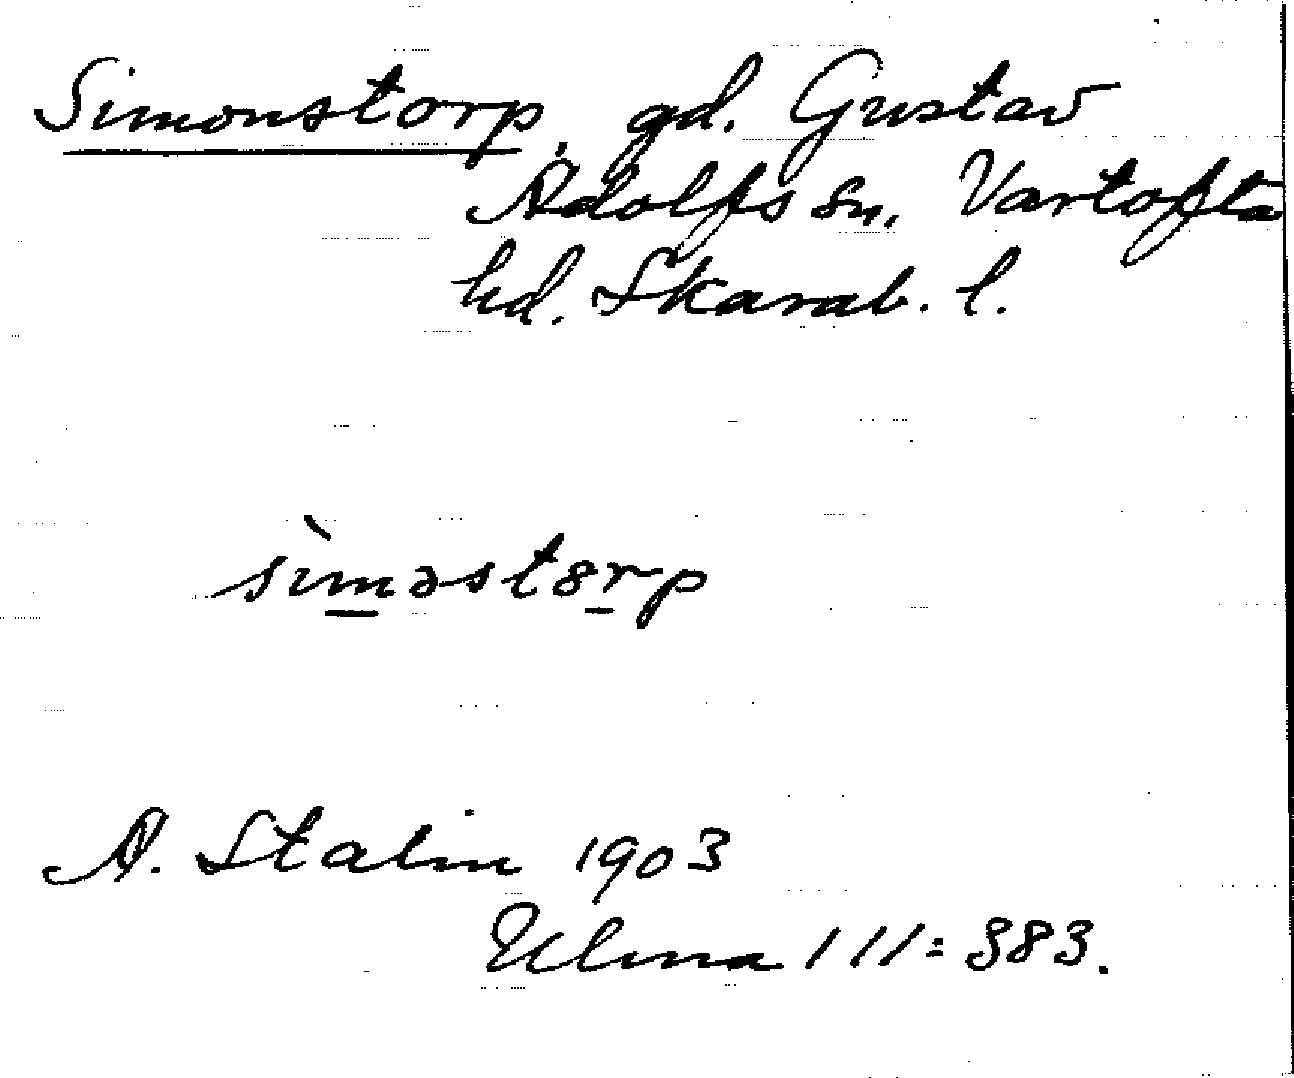 Simonstorp, gd. Gustav
Adolfs sn, Vartofta
hd. Skarab. l.
sìməst8rp
A. Stalin 1903
Ulma 111:383.